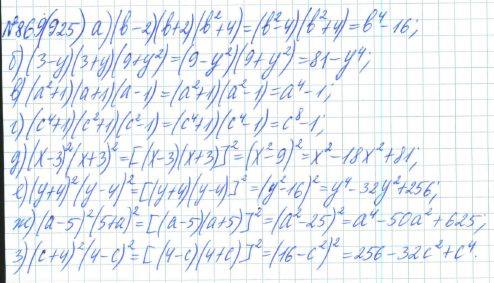 №869(925) а) (b-2)(b+2)(b²+4)=(b²-4)(b²+4)=b⁴-16;
б) (3-y)(3+y)(9+y²)=(9-y²)(9+y²)=81-y⁴;
в) (a²+1)(a+1)(a-1)=(a²+1)(a²-1)=a⁴-1;
г) (c⁴+1)(c²+1)(c²-1)=(c⁴+1)(c⁴-1)=c⁸-1;
д) (x-3)²(x+3)²=[(x-3)(x+3)]²=(x²-9)²=x²-18x²+81;
е) (y+4)²(y-4)²=[(y+4)(y-4)]²=(y²-16)²=y⁴-32y²+256;
ж) (a-5)²(5+a)²=[(a-5)(a+5)]²=(a²-25)²=a⁴-50a²+625;
з) (c+4)²(4-c)²=[(4-c)(4+c)]²=(16-c²)²=256-32c²+c⁴.